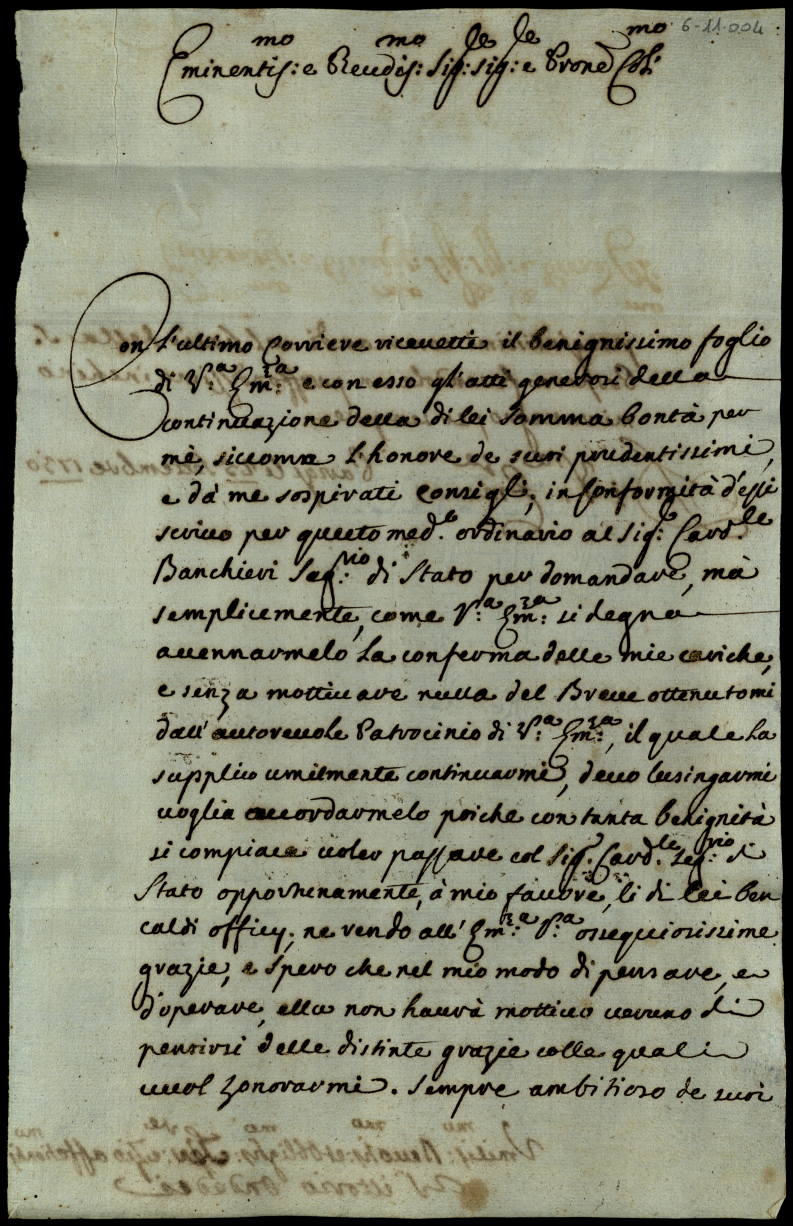 6-11-004
Eminentis:mo e Revdis:mo Sig:re Sig:re e Prone Col:mo
Con l'ultimo Corriere ricevetti il benignissimo foglio
di V:a Em:za e con esso gl'atti generosi della
continuazione della di lei somma bontà per
mè, siccome l'honore de suoi prudentissimi,
e dà me sospirati consigli; in conformità d'essi
scrivo per questo med:o ordinario al Sig:r Card:le
Banchieri Seg:rio di Stato per domandare, mà
semplicemente, come V:a Em:za si degna
accennarmelo la conferma delle mie cariche,
e senza mottivare nulla del Breve ottenutomi
dall'autorevole Patrocinio di V:a Em:za, il quale la
supplico umilmente continuarmi, devo lusingarmi
voglia accordarmelo poiche con tanta benignità
si compiace voler passare col Sig:r Card:le Seg:rio di
Stato opportunamente, à mio favore, li di lei ben
caldi officy; ne rendo all'Em:za V:a ossequiosissime
grazie, e spero che nel mio modo di pensare, e
d'operare, ella non haurà mottivo veruno di
pentirsi delle distinte grazie colle quali
vuol honorarmi. Sempre ambitioso de suoi